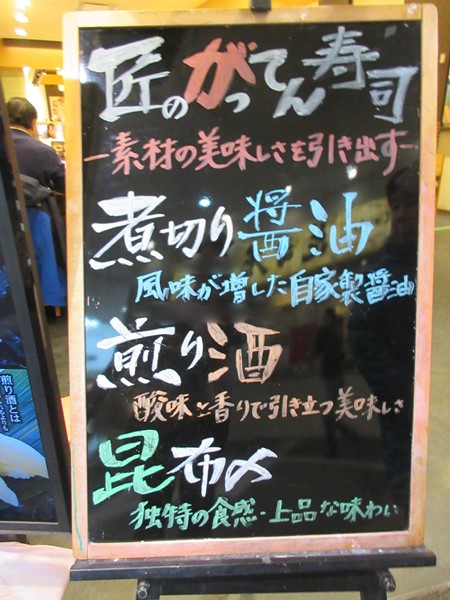 匠のがってん寿司
ー素材の美味しさを引き出すー
煮切り醤油
風味が増した自家製醤油
煎り酒
酸味と香りで引き立つ美味しさ
昆布〆
独特の食感・上品な味わい
煎り酒とは